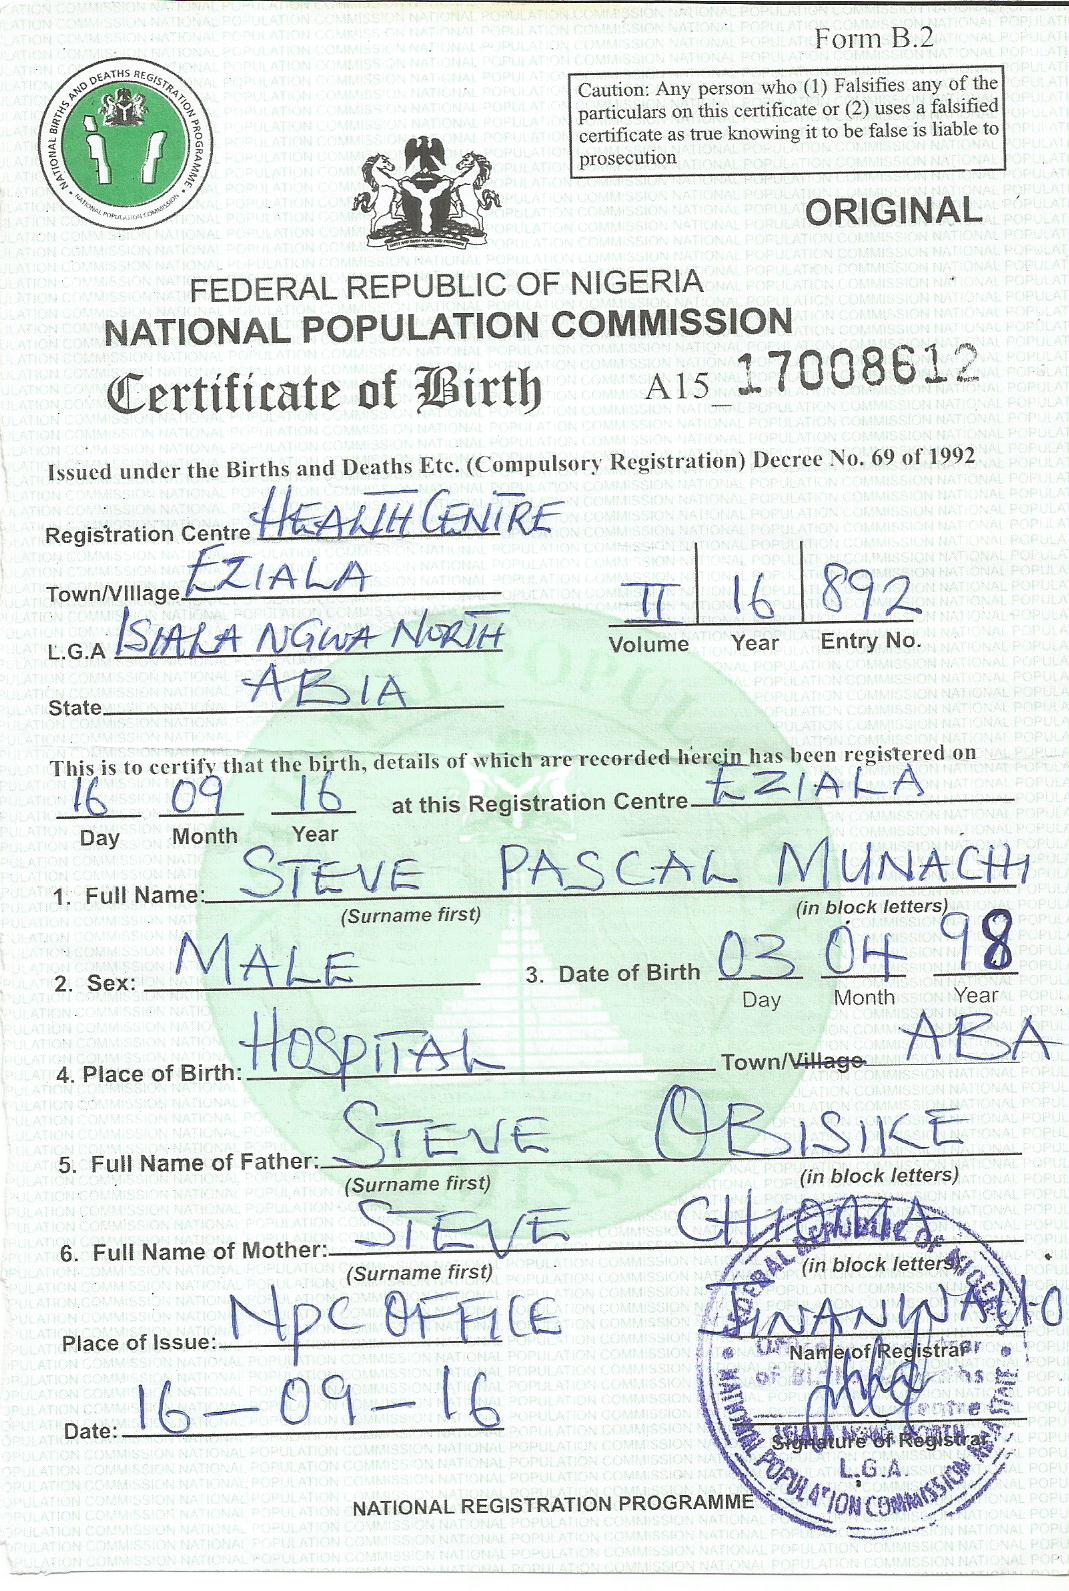 Form B.2
NATIONAL BIRTHS AND DEATHS REGISTRATION PROGRAMME
NATIONAL POPULATION COMMISSION
Caution: Any person who (1) Falsifies any of the
particulars on this certificate or (2) uses a falsified
certificate as true knowing it to be false is liable to
prosecution
ORIGINAL
FEDERAL REPUBLIC OF NIGERIA
NATIONAL POPULATION COMMISSION
Certificate of Birth A15_17008612
Issued under the Births and Deaths Etc. (Compulsory Registration) Decree No. 69 of 1992
Registration Centre HEALTH CENTRE
Town/Village EZIALA
II 16 892
Volume Year Entry No.
L.G.A ISIALA NGWA NORTH
State ABIA
This is to certify that the birth, details of which are recorded herein has been registered on
16 09 16 at this Registration Centre EZIALA
Day Month Year
1. Full Name: STEVE PASCAL MUNACHI
(Surname first) (in block letters)
2. Sex: MALE 3. Date of Birth 03 04 98
Day Month Year
4. Place of Birth: HOSPITAL Town/Village ABA
5. Full Name of Father: STEVE OBISIKE
(Surname first) (in block letters)
6. Full Name of Mother: STEVE CHIOMA
(Surname first) (in block letters)
Place of Issue: NPC OFFICE
Name of Registrar
Date: 16-09-16
Signature of Registrar
FEDERAL REPUBLIC OF NIGERIA
ISIALA NGWA NORTH
L.G.A.
NATIONAL POPULATION COMMISSION ABIA STATE
NATIONAL REGISTRATION PROGRAMME